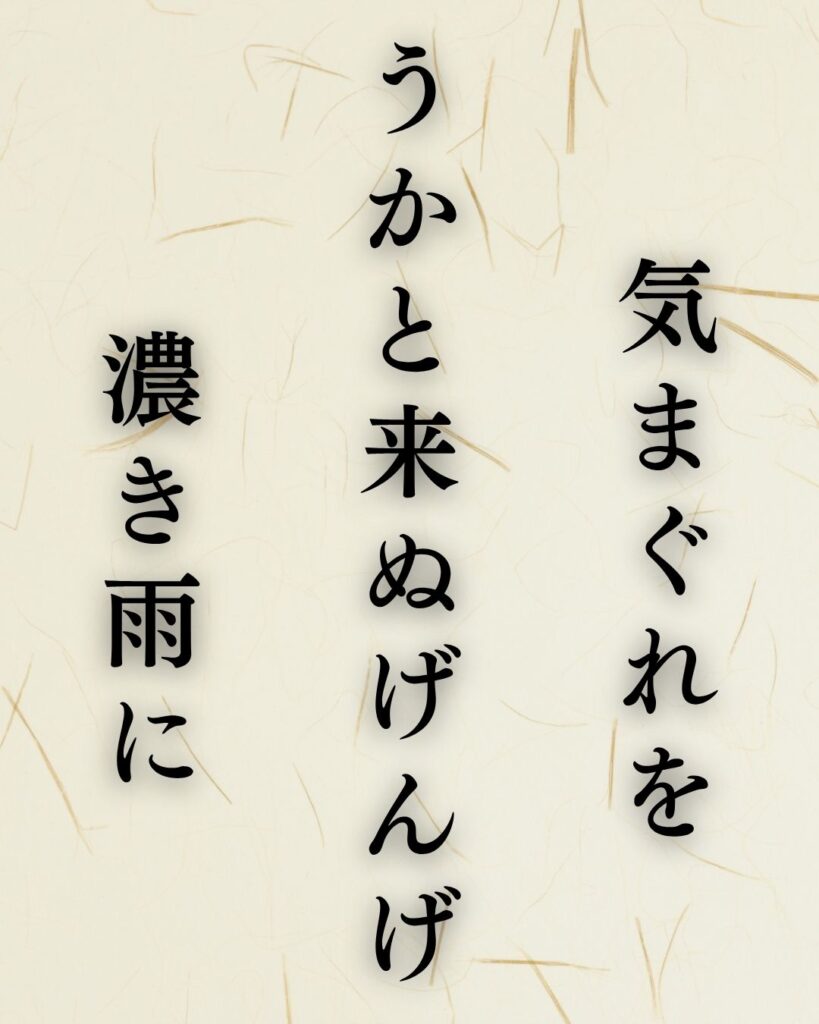 気まぐれを
うかと来ぬげんげ
濃き雨に